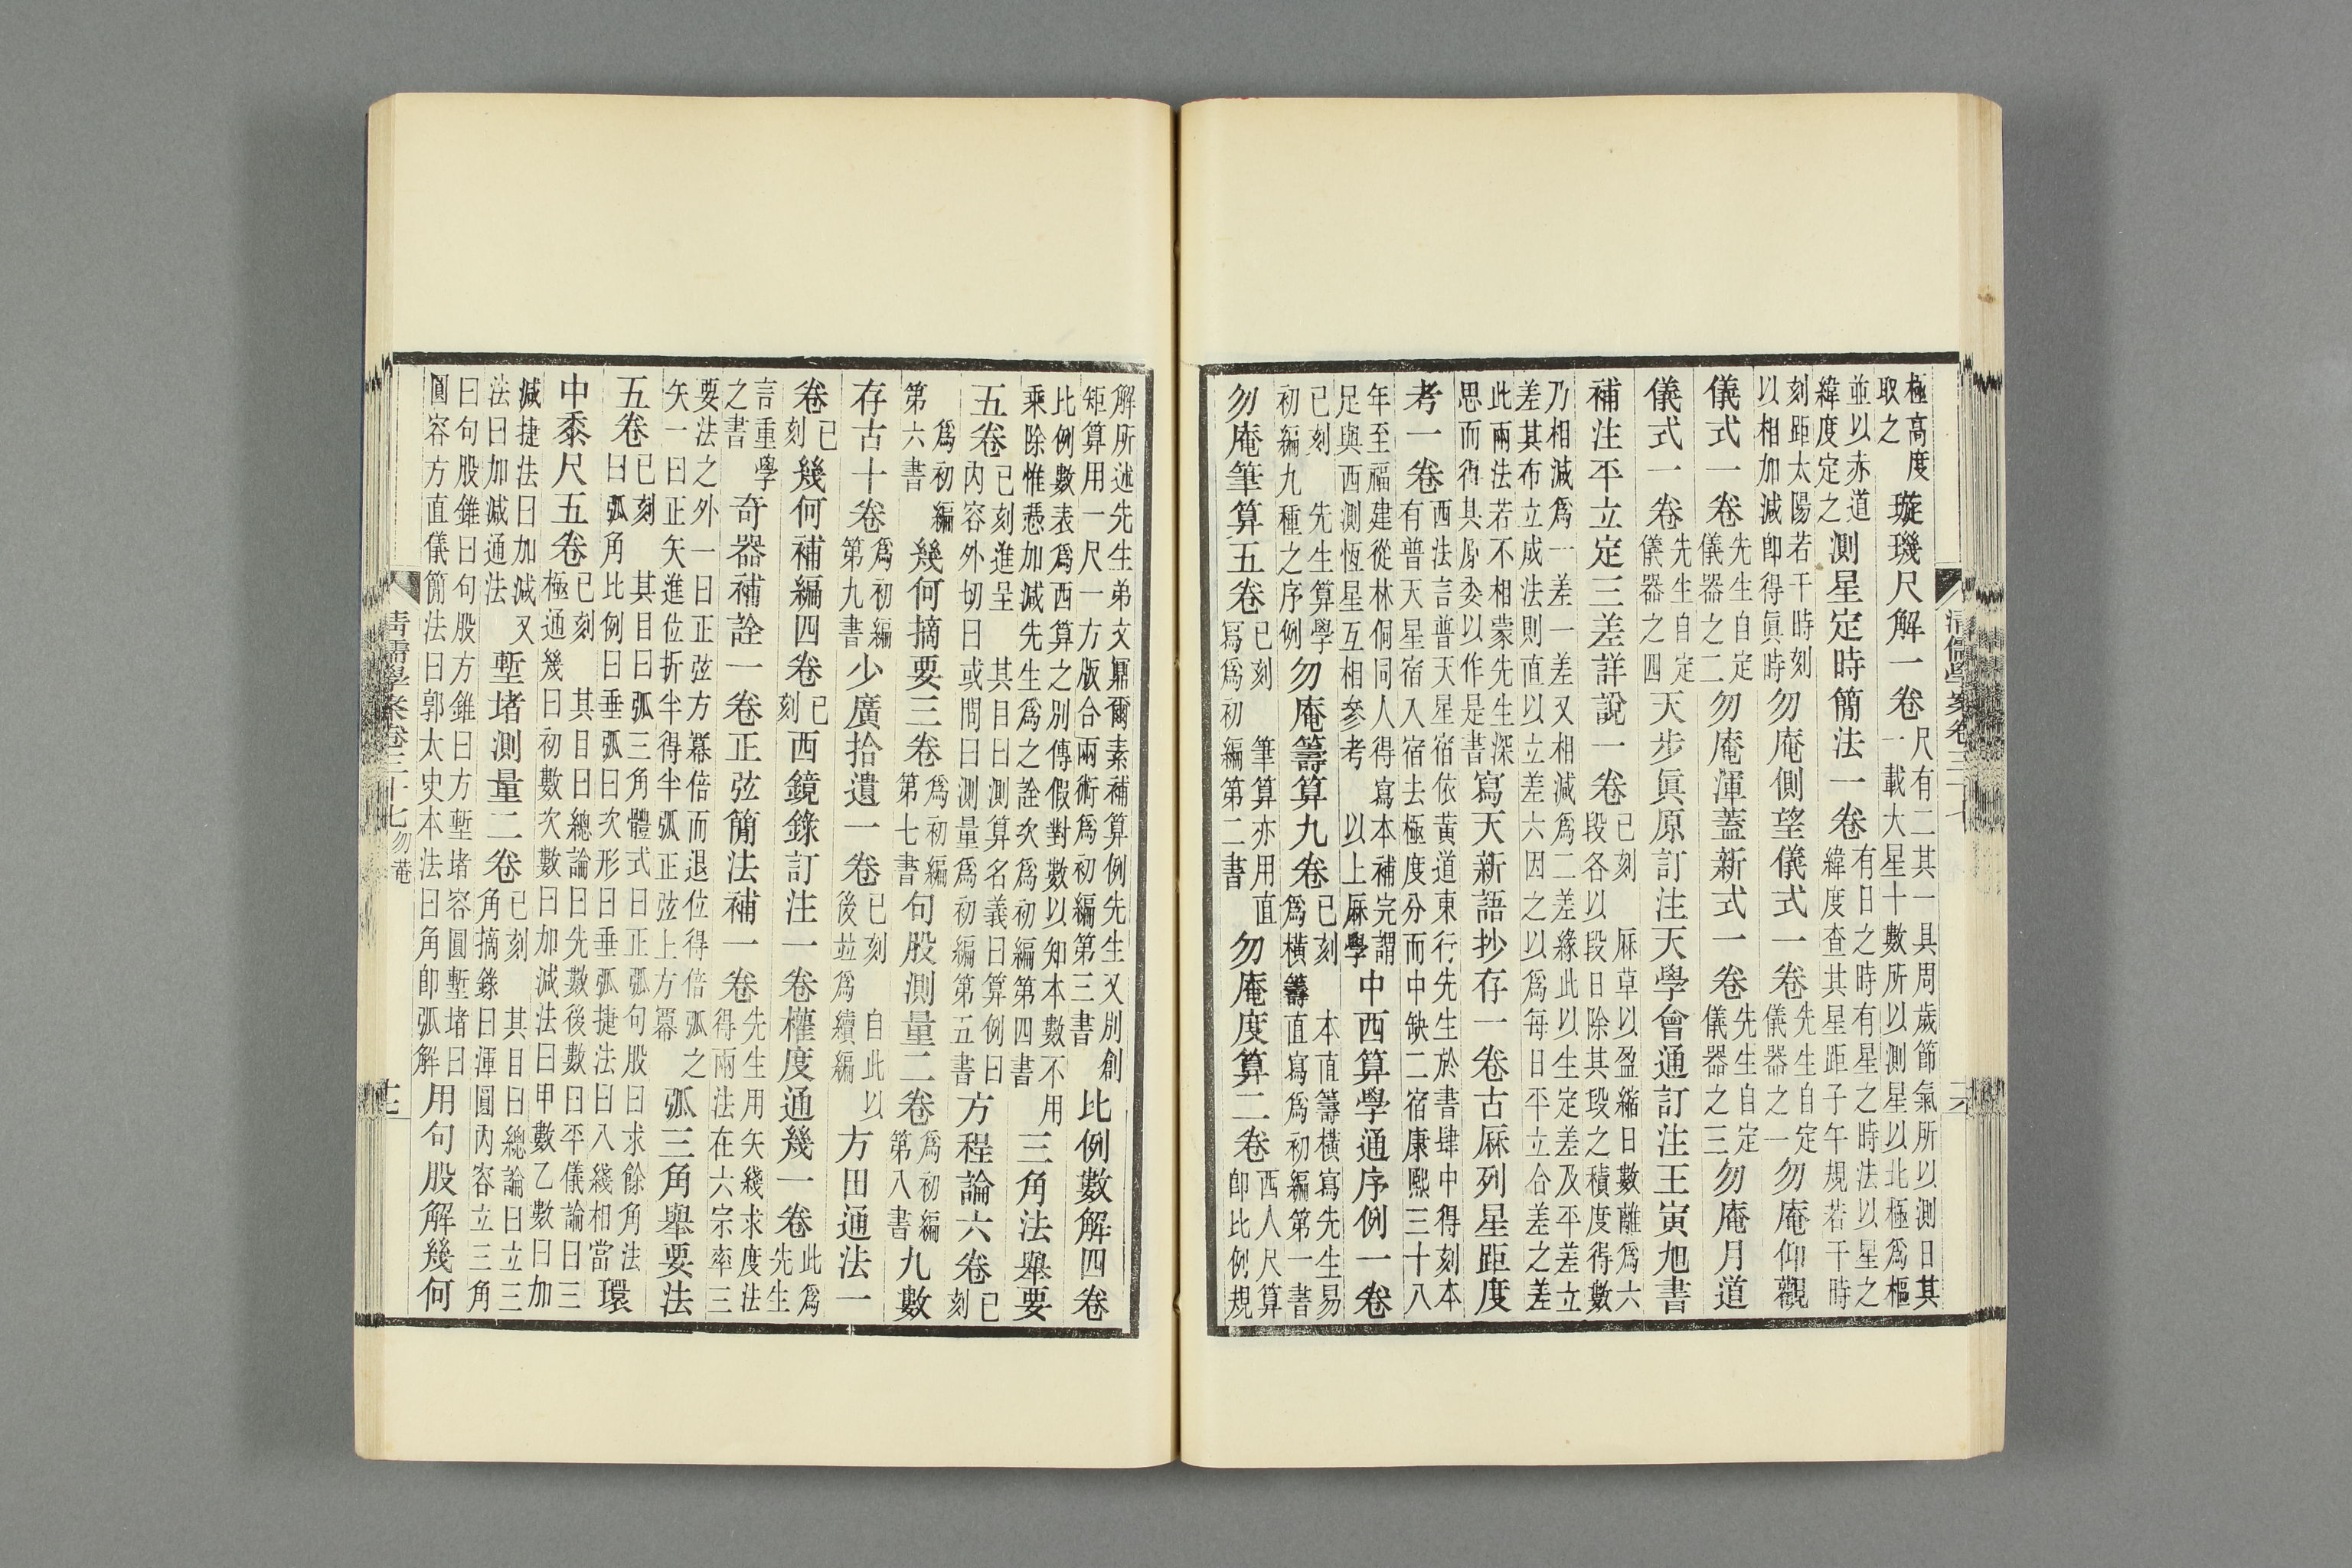 清儒學案卷三十七
極高度取之璇璣尺解一卷尺有二其一具周歲節氣所以測日其一載大星十數所以測星以北極爲樞
並以赤道緯度定之測星定時簡法一卷有日之時有星之時法以星之緯度查其星距子午規若干時
刻距太陽若干時刻以相加減卽得眞時勿庵側望儀式一卷先生自定儀器之一勿庵仰觀
儀式一卷先生自定儀器之二勿庵渾蓋新式一卷先生自定儀器之三勿庵月道
儀式一卷先生自定儀器之四天步眞原訂注天學會通訂注王寅旭書
補注平立定三差詳說一卷已刻厤草以盈縮日數離爲六段各以段日除其段之積度得數
乃相減爲一差一差又相減爲二差緣此以生定差及平差立差其布立成法則直以立差六因之以爲每日平立合差之差
此兩法若不相蒙先生深思而得其原委以作是書寫天新語抄存一卷古厤列星距度
考一卷西法言普天星宿依黃道東行先生於書肆中得刻本有普天星宿入宿去極度分而中缺二宿康熙三十八
年至福建從林侗同人得寫本補完謂足與西測恆星互相參考以上厤學中西算學通序例一卷
已刻先生算學初編九種之序例勿庵籌算九卷已刻本直籌橫寫先生易爲橫籌直寫爲初編第一書
勿庵筆算五卷已刻筆算亦用直寫爲初編第二書勿庵度算二卷西人尺算卽比例規
解所述先生弟文鼐爾素補算例先生又別創矩算用一尺一方版合兩術爲初編第三書比例數解四卷
比例數表爲西算之別傳假對數以知本數不用乘除惟憑加減先生爲之詮次爲初編第四書三角法舉要
五卷已刻進呈其目曰測算名義曰算例曰內容外切曰或問曰測量爲初編第五書方程論六卷已刻
爲初編第六書幾何摘要三卷爲初編第七書句股測量二卷爲初編第八書九數
存古十卷爲初編第九書少廣拾遺一卷已刻自此以後並爲續編方田通法一
卷已刻幾何補編四卷已刻西鏡錄訂注一卷權度通幾一卷此爲先生
言重學之書奇器補詮一卷正弦簡法補一卷先生用矢綫求度法得兩法在六宗率三
要法之外一曰正弦方冪倍而退位得倍弧之矢一曰正矢進位折半得半弧正弦上方冪弧三角舉要法
五卷已刻其目曰弧三角體式曰正弧句股曰求餘角法曰弧角比例曰垂弧曰次形曰垂弧捷法曰八綫相當環
中黍尺五卷已刻其目曰總論曰先數後數曰平儀論曰三極通幾曰初數次數曰加減法曰甲數乙數曰加
減捷法曰加減又法曰加減通法塹堵測量二卷已刻其目曰總論曰立三角摘錄曰渾圓內容立三角
曰句股錐曰句股方錐曰方塹堵容圓塹堵曰圓容方直儀簡法曰郭太史本法曰角卽弧解用句股解幾何
清儒學案卷三十七勿菴